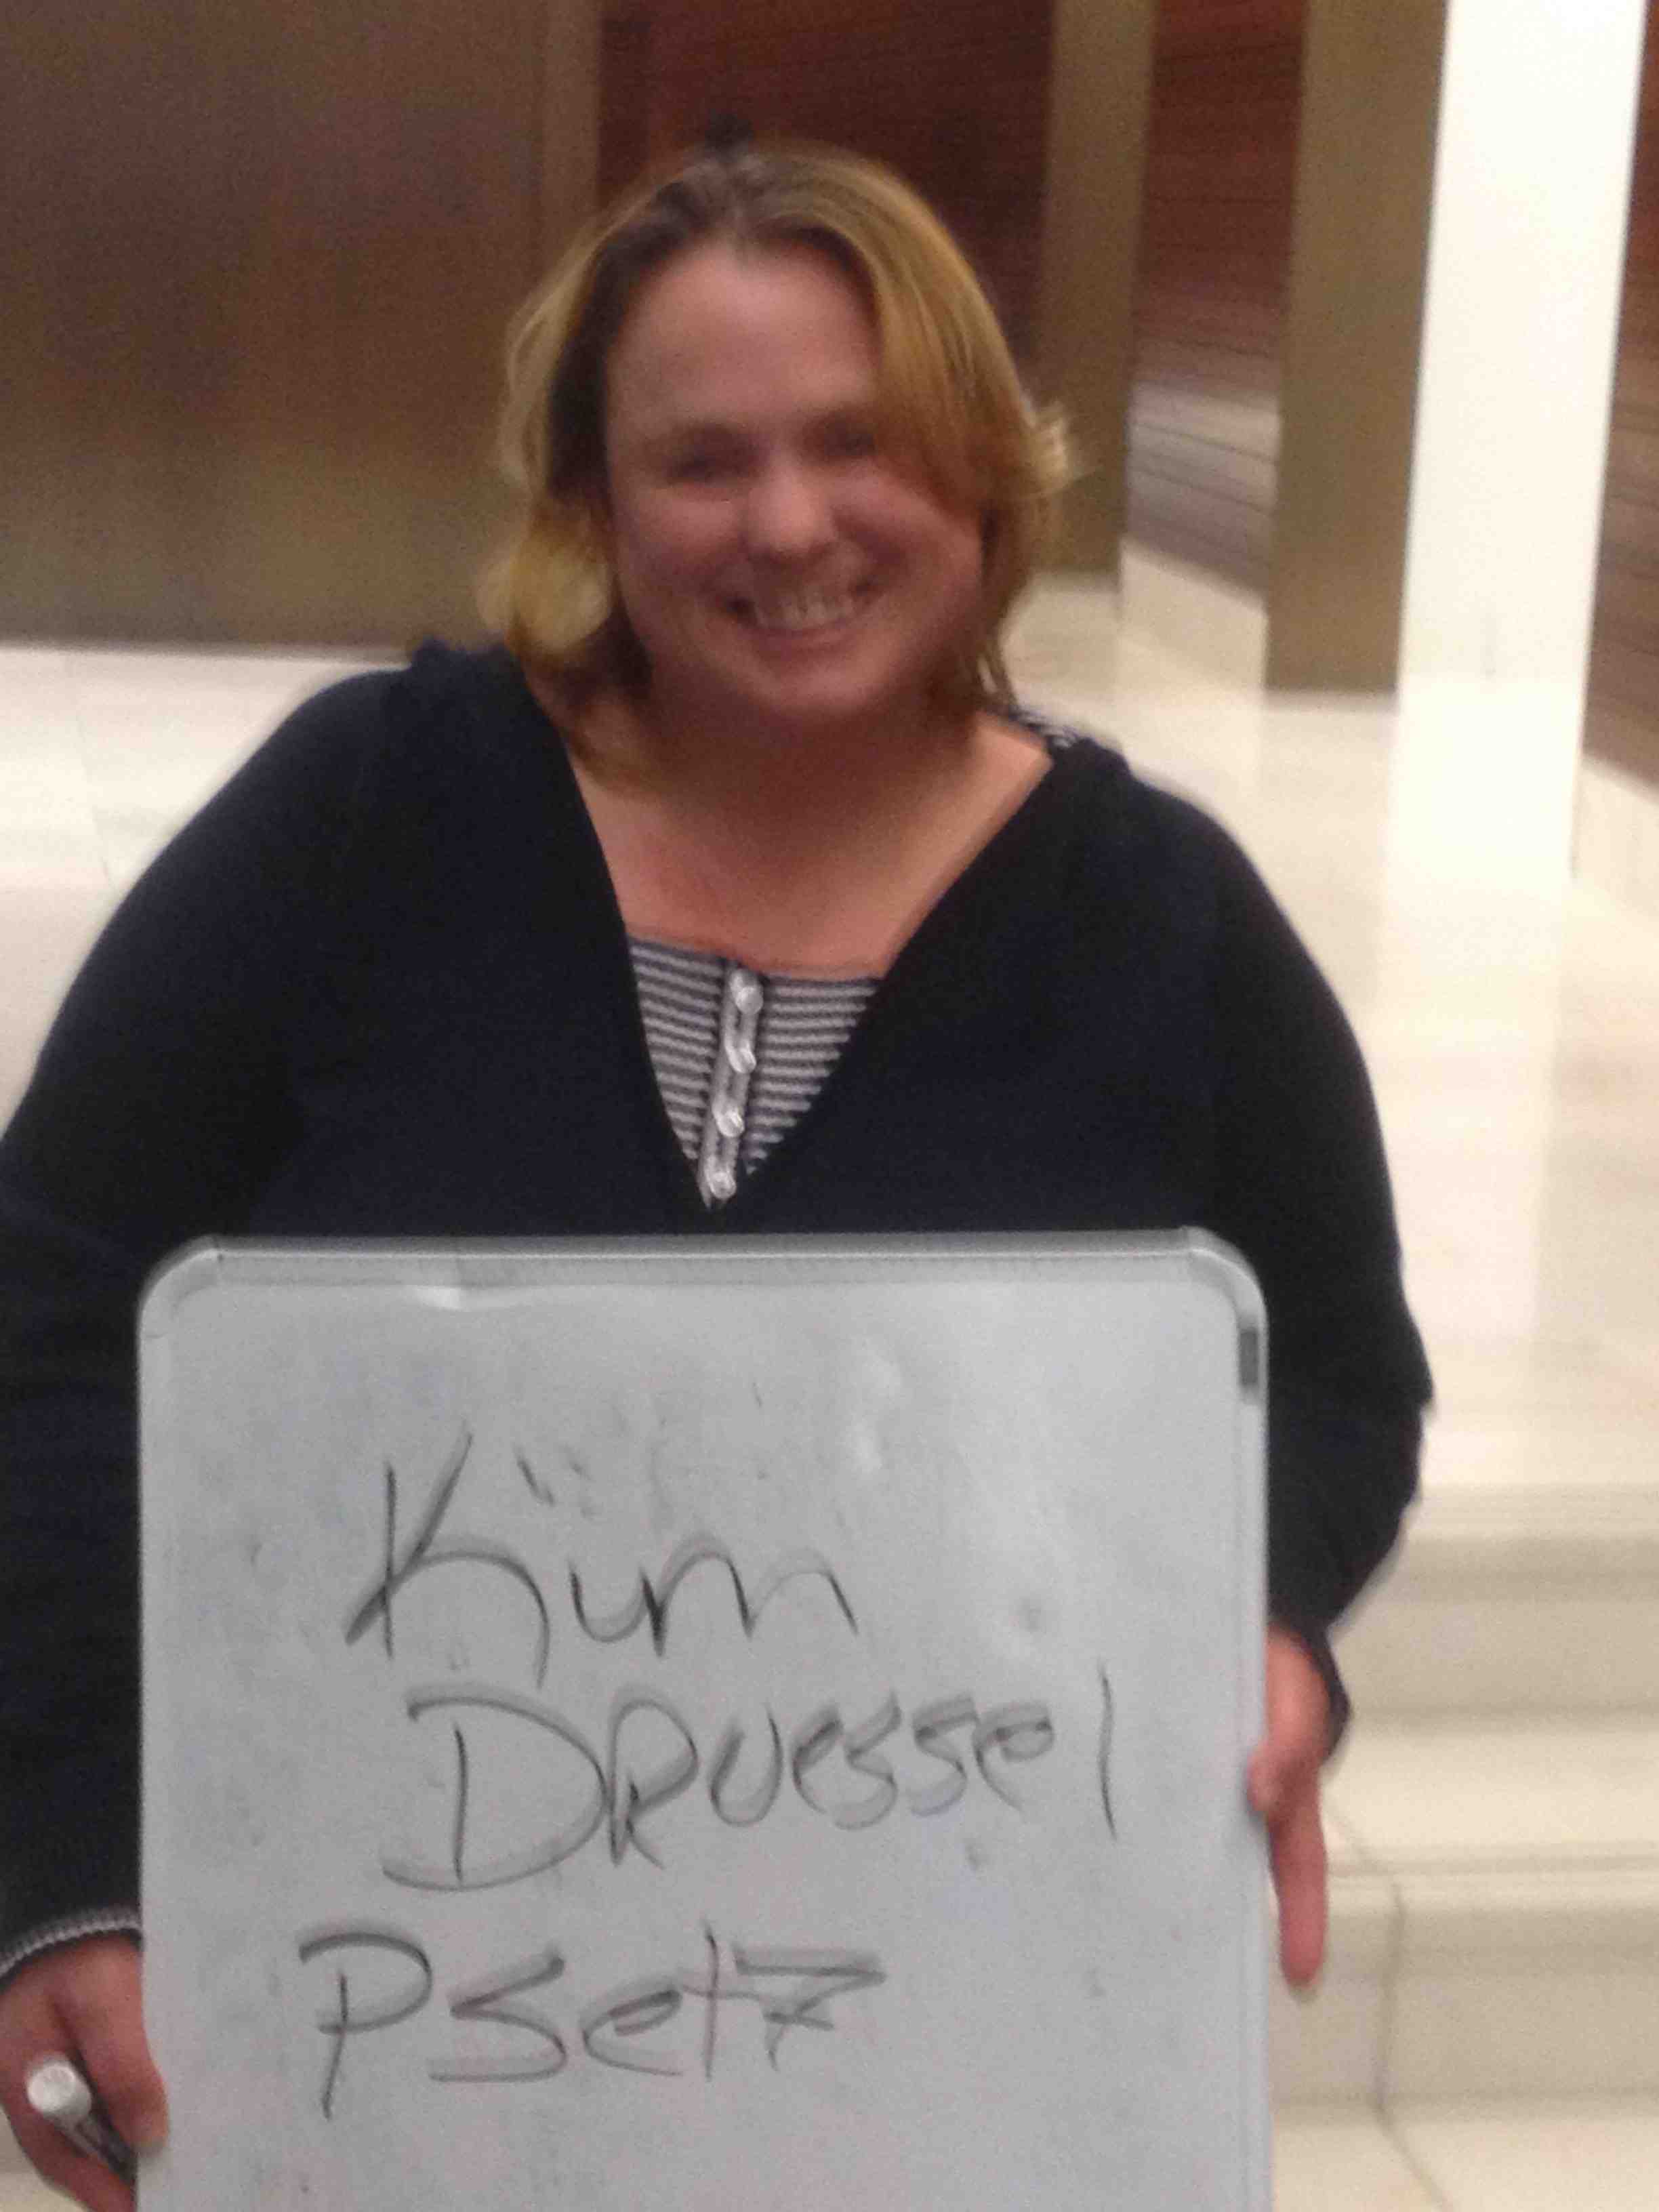 Kim
DRuessel
PSet7